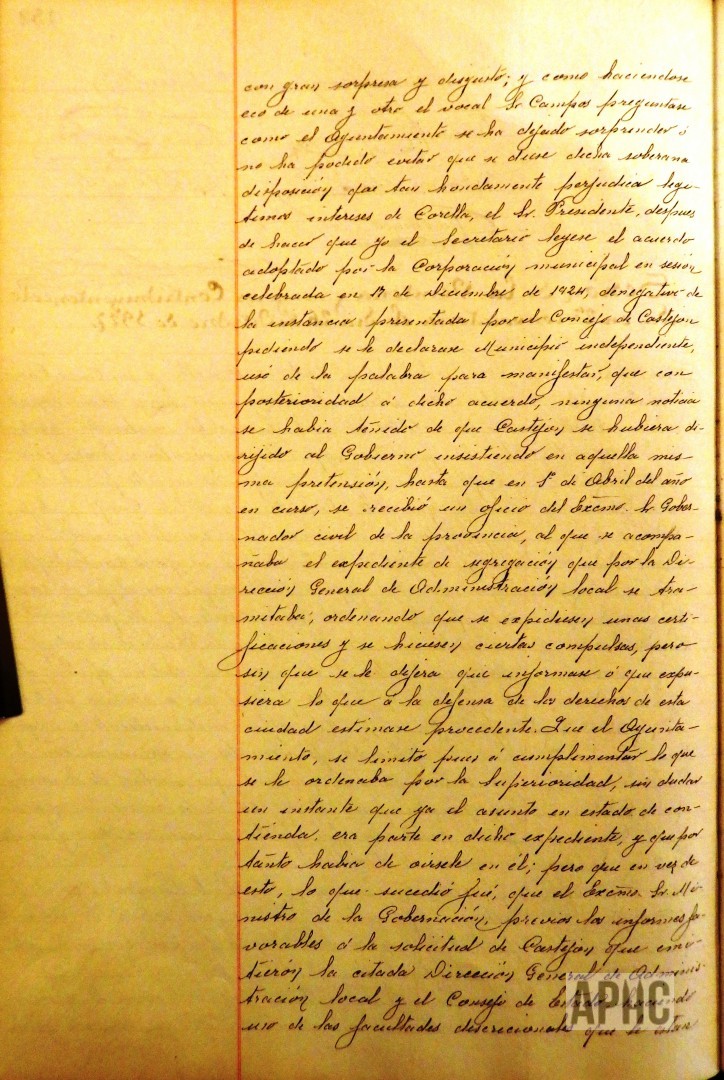 con gran sorpresa y disgusto; y como haciendose
eco de una y otro el vocal Sr Campos preguntase
como el Ayuntamiento se ha dejado sorprender ó
no ha podido evitar que se diese dicha soberana
disposición que tan hondamente perjudica legi-
timos intereses de Corella, el Sr. Presidente, despues
de hacer que yo el Secretario leyese el acuerdo
adoptado por la Corporación municipal en sesión
celebrada en 17 de Diciembre de 1924, denegativo de
la instancia presentada por el Concejo de Castejon
pidiendo se le declarase Municipio independiente,
usó de la palabra para manifestar, que con
posterioridad á dicho acuerdo, ninguna noticia
se habia tenido de que Castejon se hubiera di-
rijido al Gobierno insistiendo en aquella mis-
ma pretensión, hasta que en 1º de Abril del año
en curso, se recibió un oficio del Excmo. Sr Gober-
nador civil de la provincia, al que se acompa-
ñaba el expediente de segregación que por la Di-
rección General de Administración local se tra-
mitaba, ordenando que se expidiesen unas certi-
ficaciones y se hiciesen ciertas compulsas, pero
sin que se le dijera que informase ó que expu-
siera lo que á la defensa de los derechos de esta
ciudad estimase procedente. Que el Ayunta-
miento, se limitó pues á cumplimentar lo que
se le ordenaba por la Superioridad, sin dudar
un instante que ya el asunto en estado de con-
tienda, era parte en dicho expediente, y que por
tanto habia de oirsele en él; pero que en vez de
esto, lo que sucedió fué, que el Excmo. Sr. Mi-
nistro de la Gobernación, previos los informes fa-
vorables á la solicitud de Castejon que emi-
tieron la citada Dirección General de Adminis-
tración local y el Consejo de Estado, haciendo
uso de las facultades discrecionales que le estan
APHC